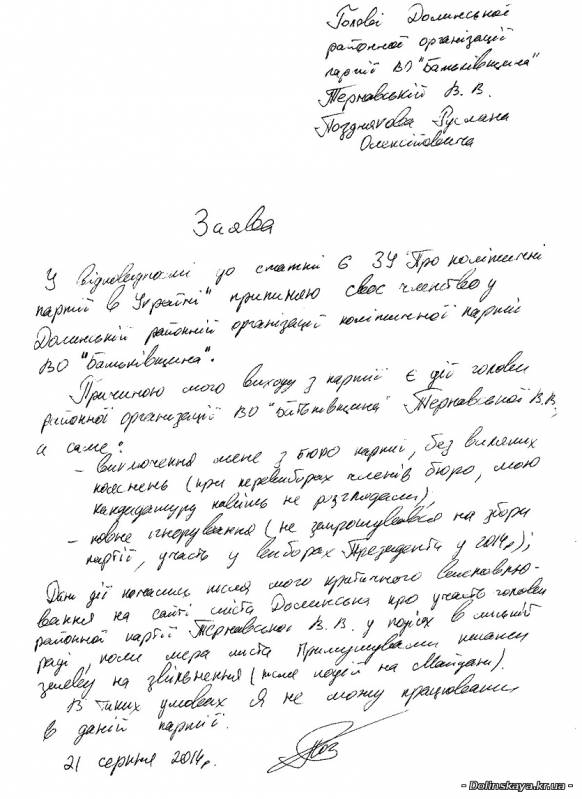 Голові Долинської
районної організації
партії ВО "Батьківщина"
Тернавській В. В.
Позднякова Руслана
Олексійовича
Заява
У відповідності до статті 6 ЗУ "Про політичні
партії в Україні" припиняю своє членство у
Долинській районній організації політичної партії
ВО "Батьківщина".
Причиною мого виходу з партії є дії голови
районної організації ВО "Батьківщина" Тернавської В.В,
а саме:
- виключення мене з бюро партії, без всяких
пояснень (при перевиборах членів бюро, мою
кандидатуру навіть не розглядали),
- повне ігнорування (не запрошувався на збори
партії, участь у виборах Президента у 2014р);
Дані дії почались після мого критичного висловлю-
вання на сайті міста Долинська про участь голови
районної партії Тернавської В. В. у подіях в міській
раді, коли мера міста примушували писати
заяву на звільнення (після подій на Майдані).
В таких умовах я не можу працювати
в даній партії.
21 серпня 2014р.
- Dolinskaya.kr.ua -